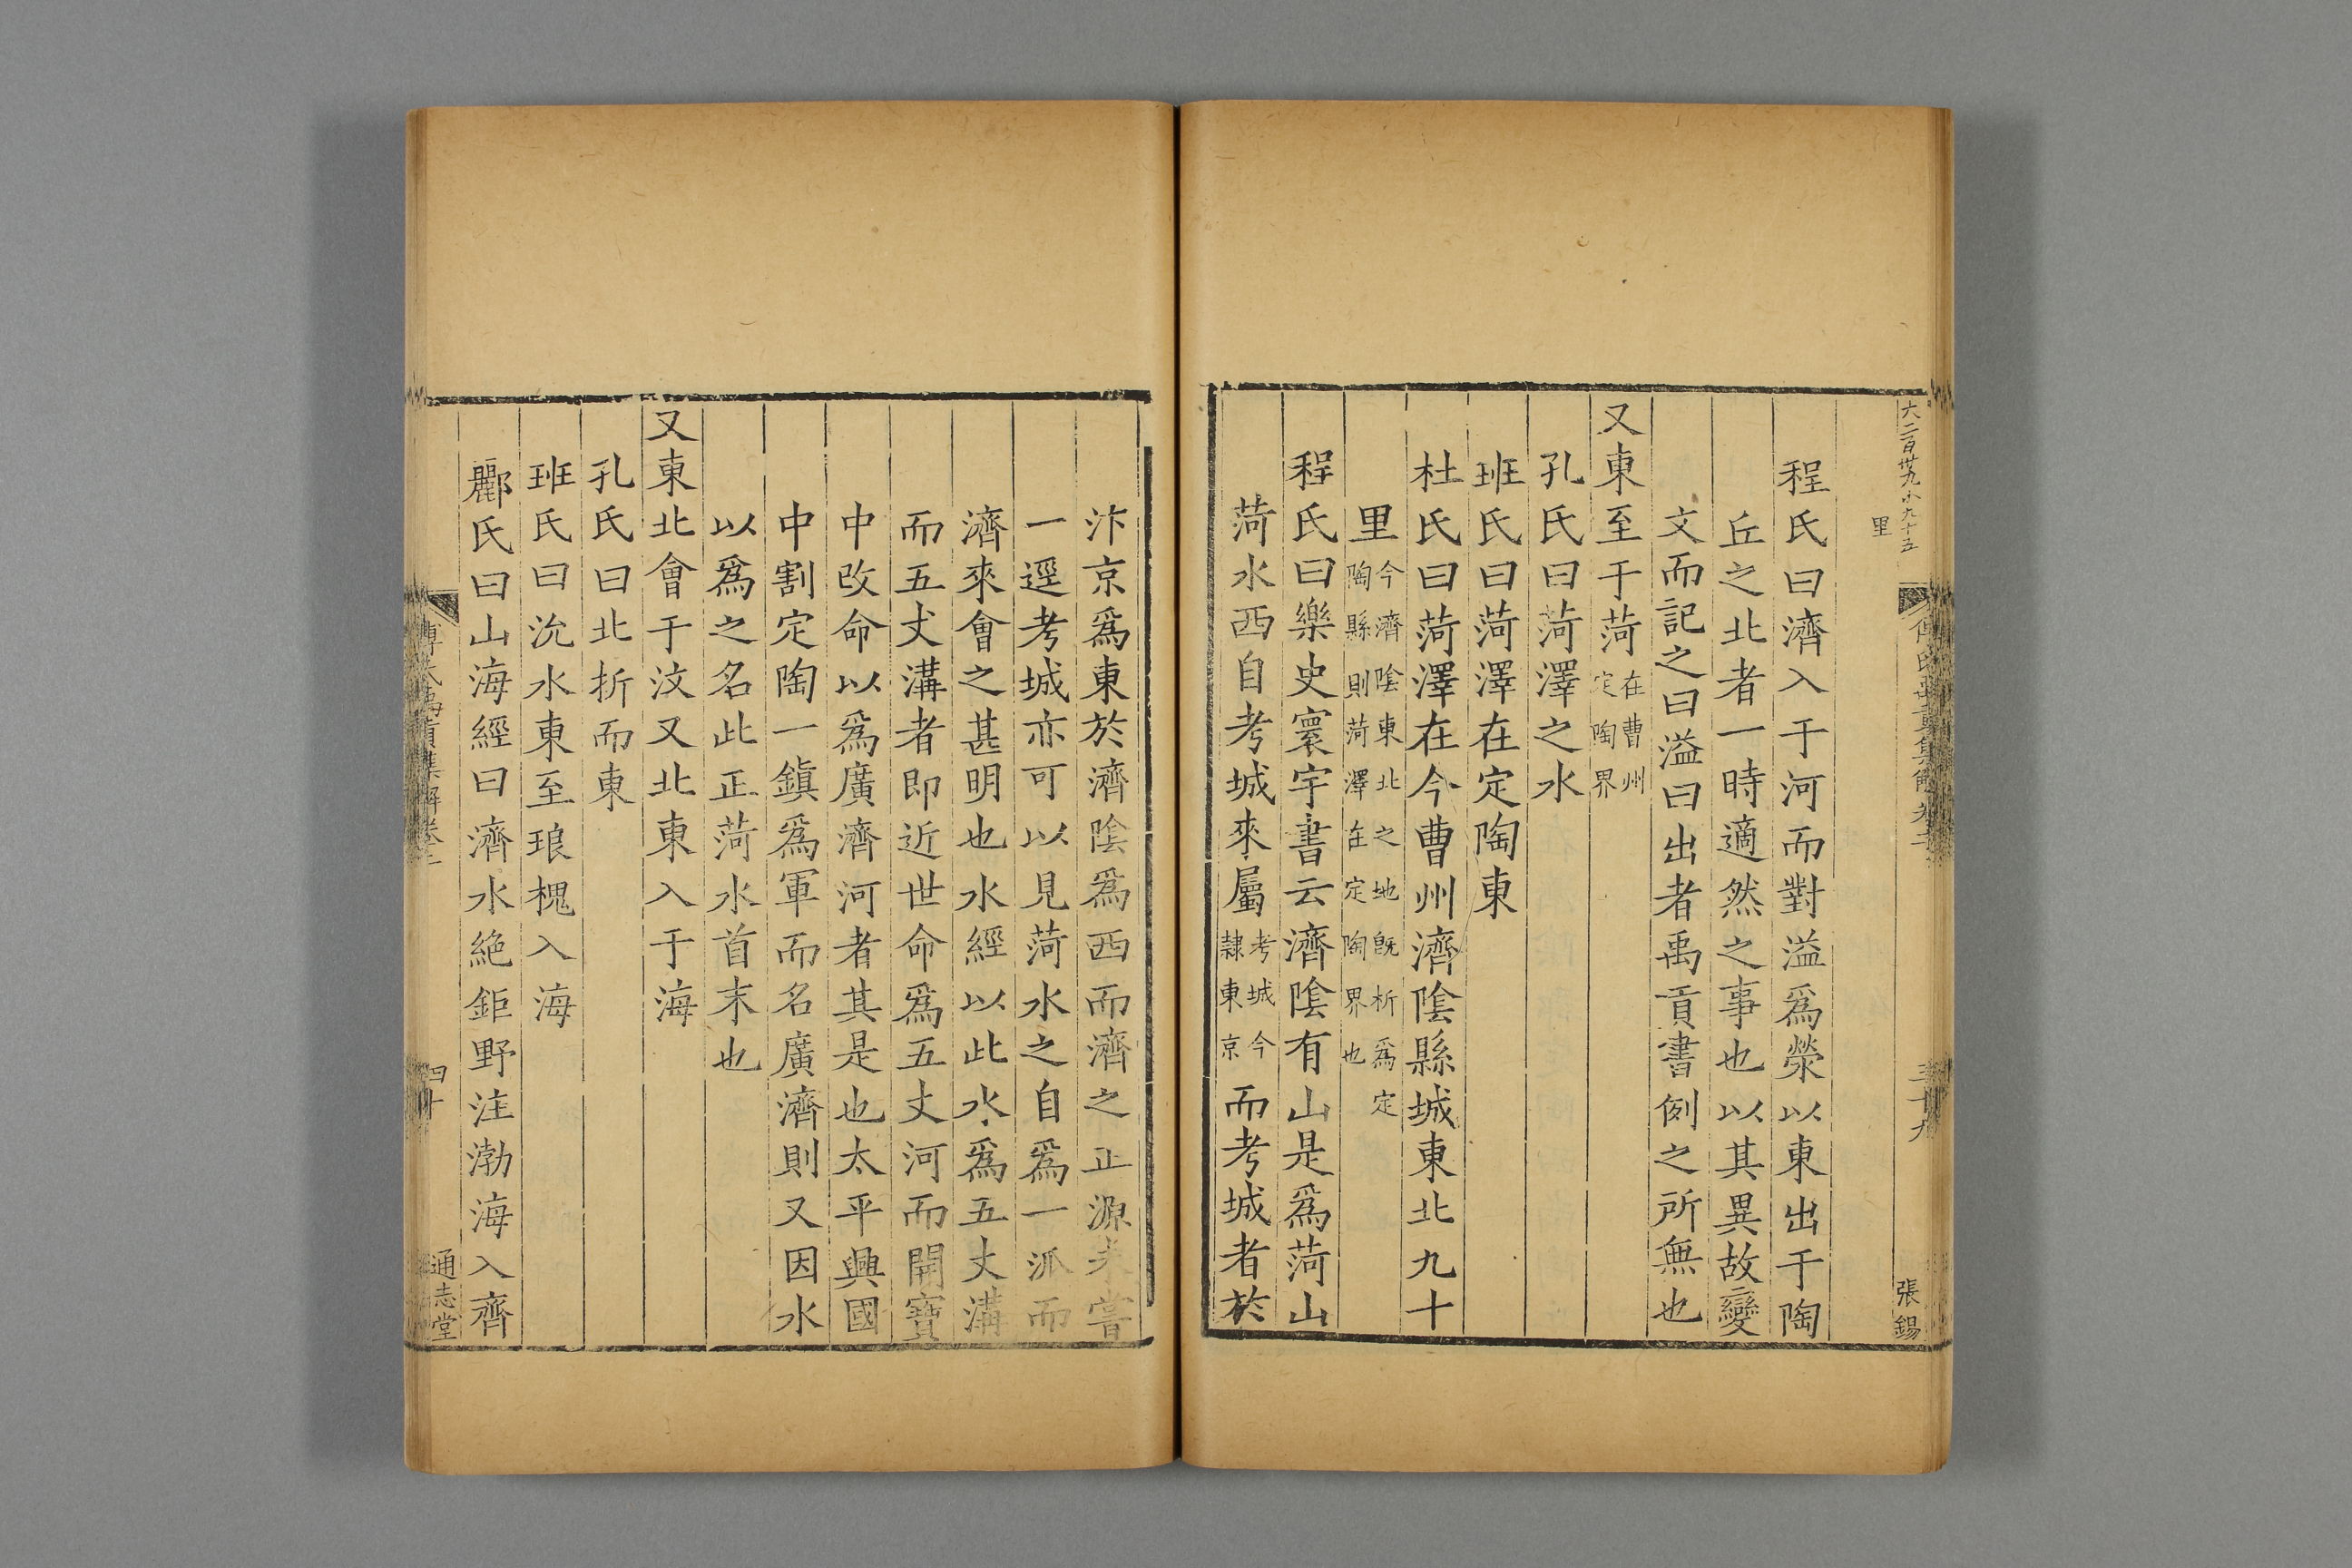 六二百卅九小九十五
張錫
里
程氏曰濟入于河而對溢爲滎以東出于陶
丘之北者一時適然之事也以其異故變
文而記之曰溢曰出者禹貢書例之所無也
又東至于菏在曹州定陶界
孔氏曰菏澤之水
班氏曰菏澤在定陶東
杜氏曰菏澤在今曹州濟陰縣城東北九十
里今濟陰東北之地旣析爲定陶縣則菏澤在定陶界也
程氏曰樂史寰宇書云濟陰有山是爲菏山
菏水西自考城來屬考城今隸東京而考城者於
汴京爲東於濟陰爲西而濟之正源未嘗
一逕考城亦可以見菏水之自爲一派而
濟來會之甚明也水經以此水爲五丈溝
而五丈溝者即近世命爲五丈河而開寶
中改命以爲廣濟河者其是也太平興國
中割定陶一鎭爲軍而名廣濟則又因水
以爲之名此正菏水首末也
又東北會于汶又北東入于海
孔氏曰北折而東
班氏曰沇水東至琅槐入海
酈氏曰山海經曰濟水絶鉅野注渤海入齊
傅氏禹貢集解卷二
四十
通志堂